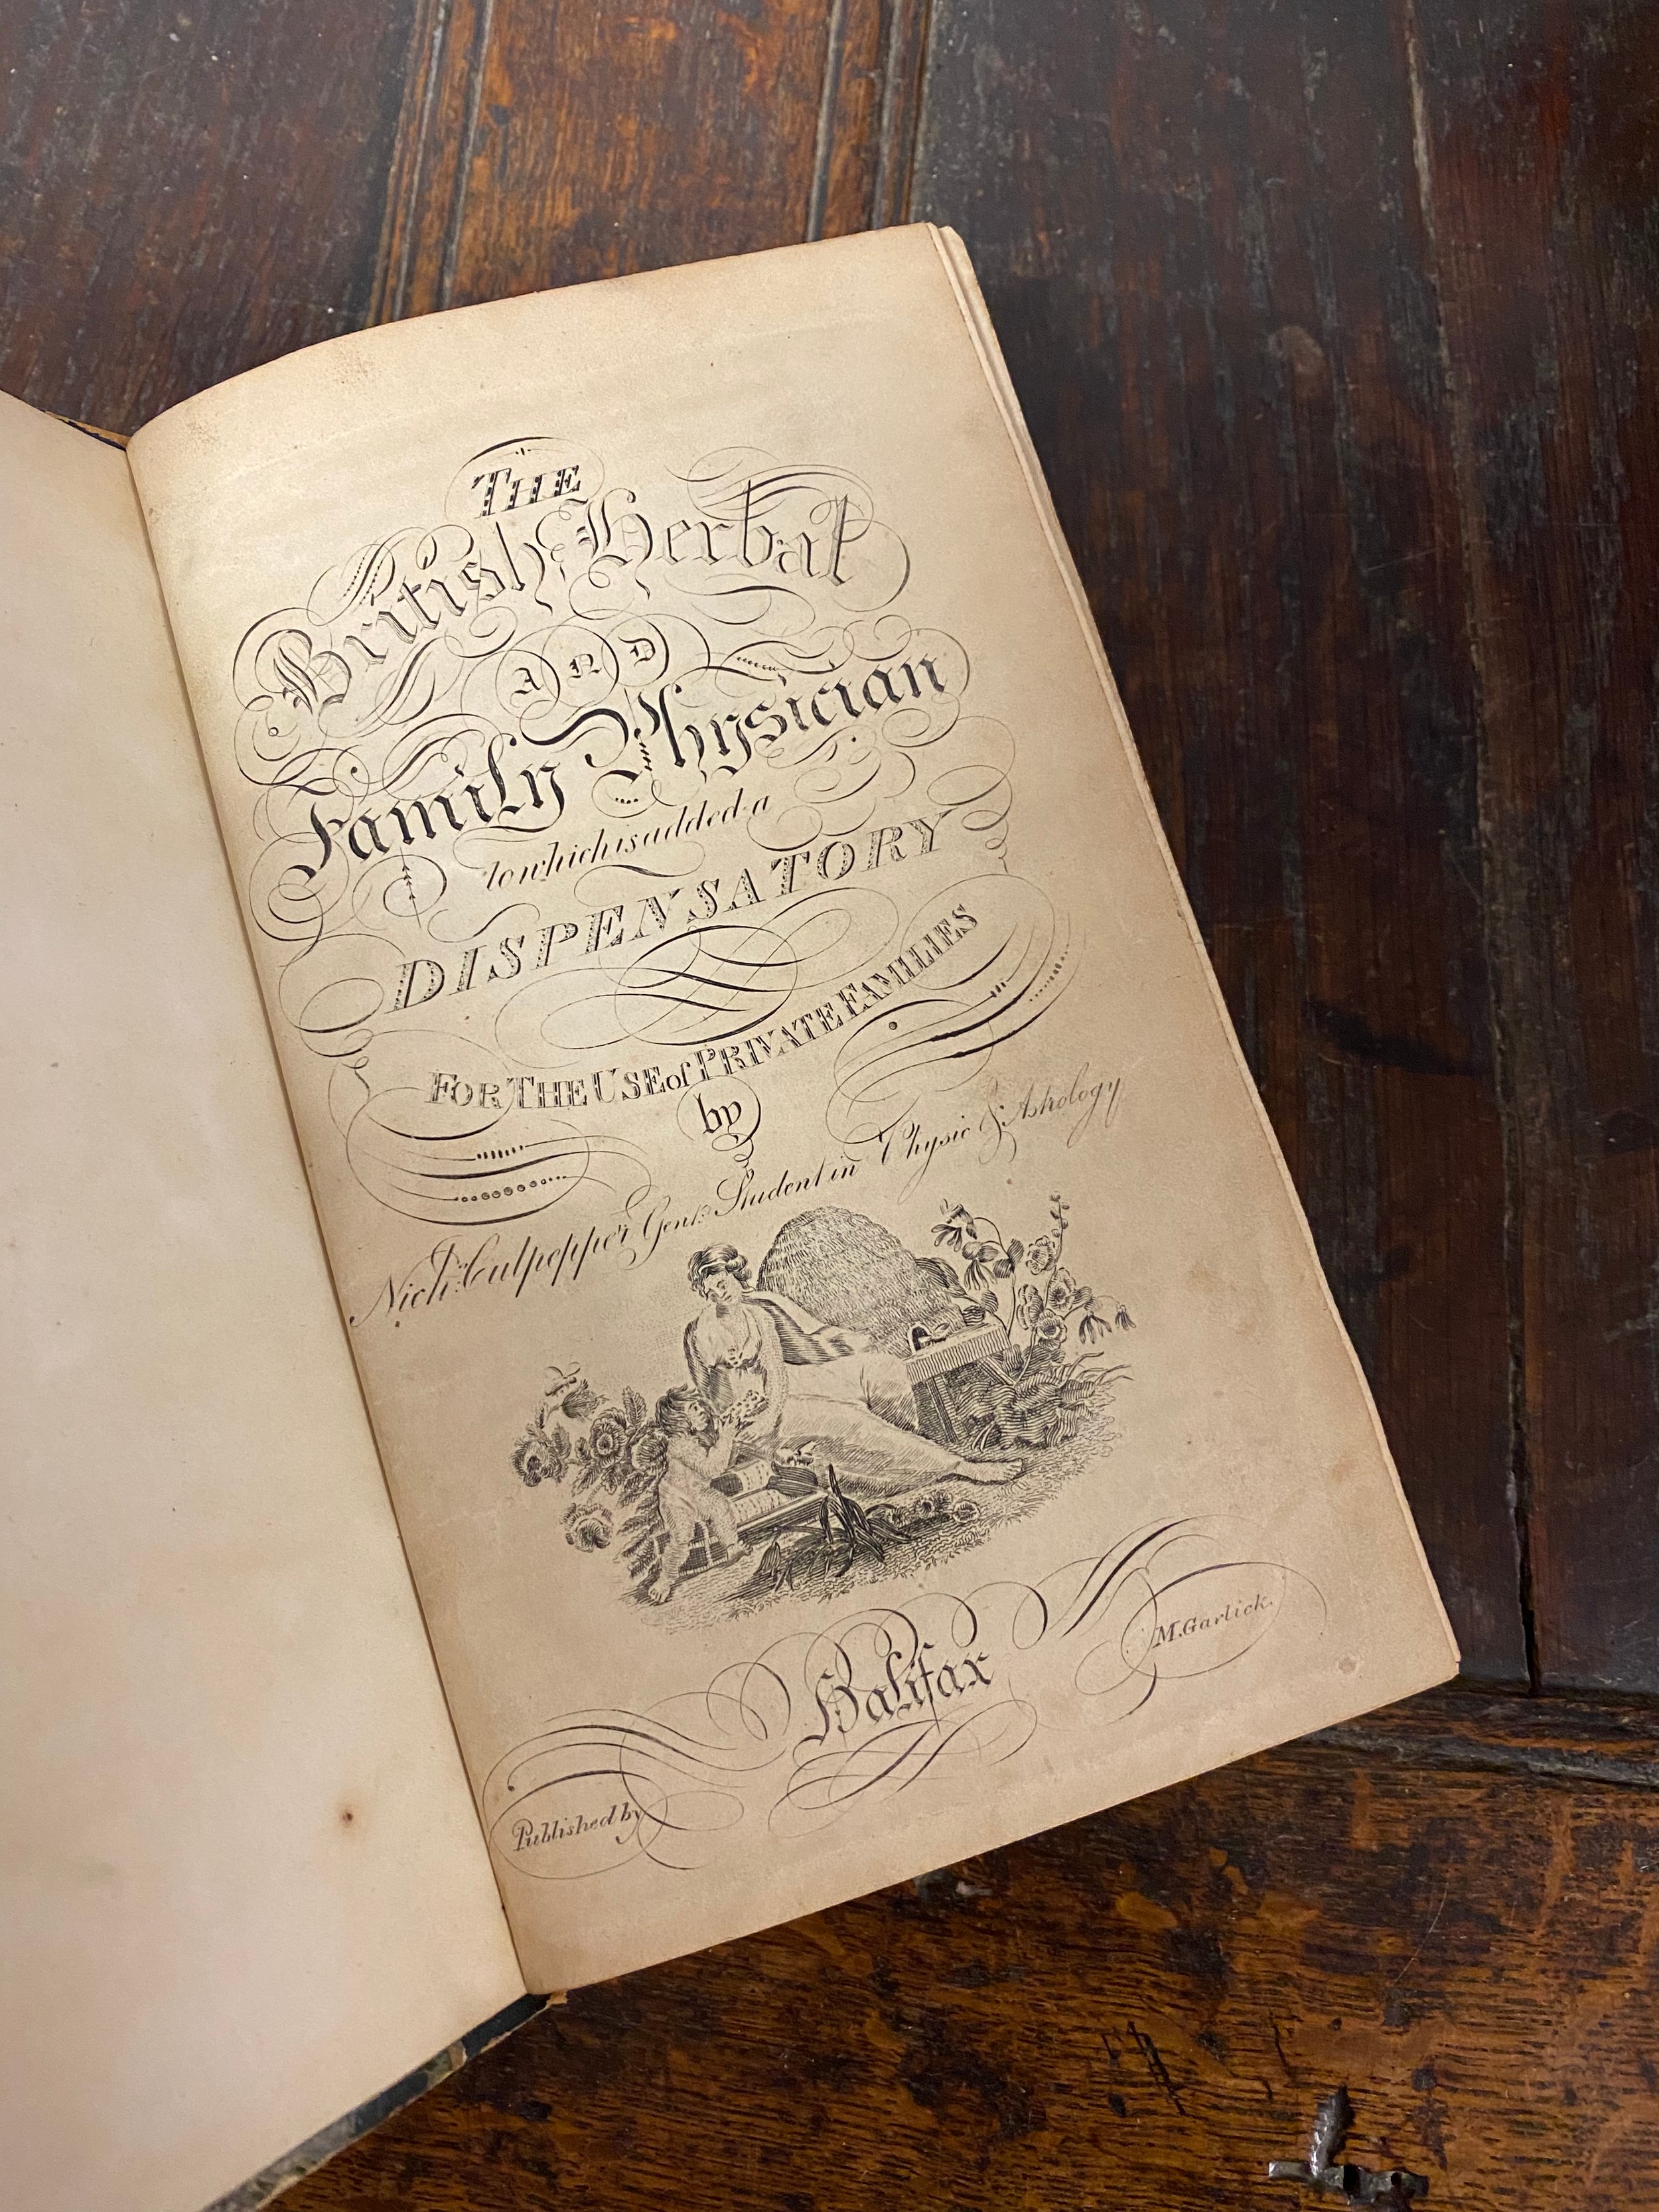 THE
British Herbal
AND
Family Physician
to which is added a
DISPENSATORY
FOR THE USE of PRIVATE FAMILIES
by
Nich: Culpepper Gent: Student in Physic & Astrology
Halifax
Published by M. Garlick.